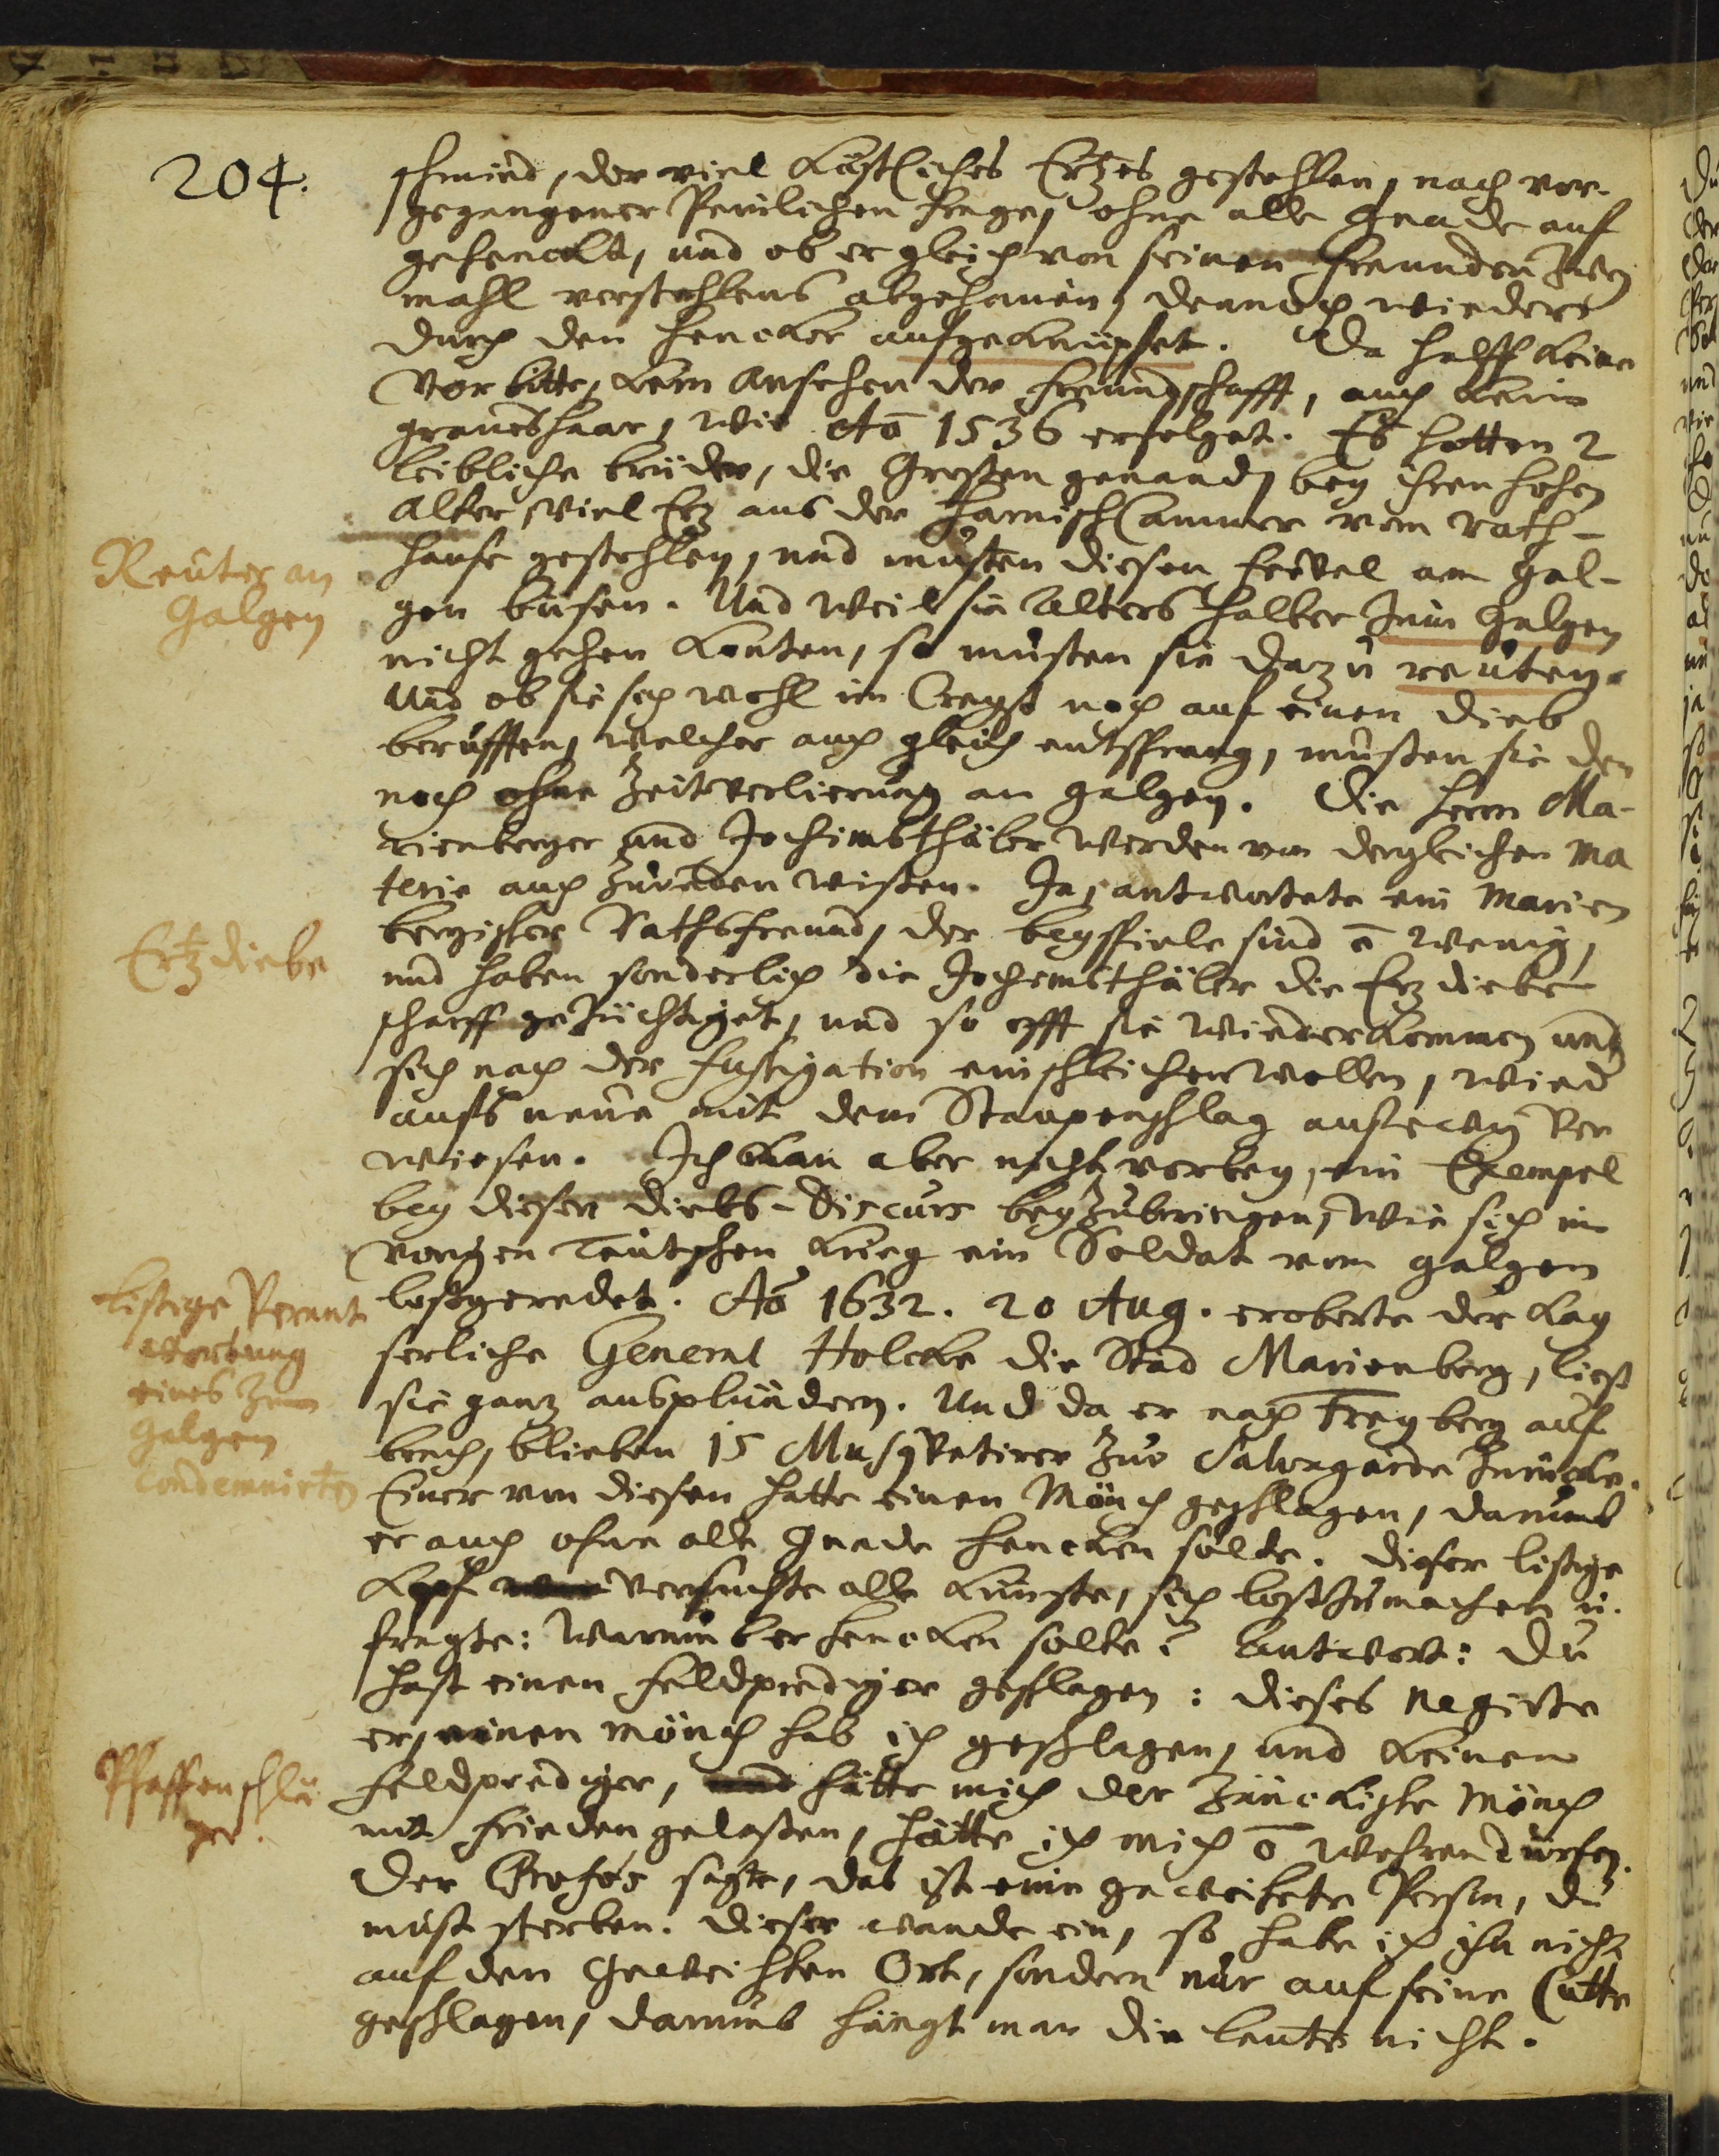 204.
schmied, der viel köstliches Ertzes gestohlen, nach vor-
gegangener Peinlichen frage, ohne alle Gnade auf
gehenckt, und ob er gleich von seinen freunden zwey
mahl verstohlens abgehauen, dennoch wieder
durch den hencker aufgeknüpfet. Da halff keine
Vorbitte, kein Ansehen der freundschafft, auch kein
graues haar, wie Aō 1536 erfolget. Es hatten 2
leibliche brüder, die Großen genand, bey ihren hohen
Alter, viel Erz aus der Harnisch Cammer vom Rath-
hause gestohlen, und musten diesen frevel am Gal-
Reuter an
Galgen
gen büsen. Und weil sie Alters halber zum Galgen
nicht gehen konten, so musten sie dazu reuten.
Und ob sie sich wohl im Creyß noch auf einen dieb
berufften, welcher auch gleich entsprang, musten sie den
noch ohne Zeitverlierung an galgen. Die herrn Ma-
rienberger und Jochimsthäler werden von dergleichen Ma
terie auch zureden wissen. Ja, antwortete ein Marien
Ertzdiebe
bergischer Rathsfreund, der beyspiele sind ō wenig,
und haben sonderlich die Jochemsthäler die Erzdiebe
scharff gezüchtiget, und so offt sie wiederkommen und
sich nach der fustigation einschleichen wollen, wied
aufs neue mit dem Staupenschlag auf ewig ver
wiesen. Ich kan aber nicht vorbey, ein Exempel
bey diesen diebs-Discurs beyzubringen, wie sich im
vorigen Teutschen krieg ein Soldat vom galgen
Listige Verant
wortung
eines zum
Galgen
condemnirten
loßgeredet. Aō 1632. 20 Aug. eroberte der Kay
serliche General Holcke die Stad Marienberg, ließ
sie ganz ausplündern. Und da er nach Freyberg auf
brach, blieben 15 Musqvetirer zur Salvagarde zurücke.
Einer von diesen hatte einen Mönch geschlagen, darumb
er auch ohne alle Gnade hencken solte. Dieser listige
Kopf versuchte alle künste, sich loßzumachen u.
fragte: Warumb er hencken solte? Antwort: Du
hast einen feldprediger geschlagen: dieses negirte
er, einen Mönch hab ich geschlagen, und keinen
Pfaffenschlä
ger.
feldprediger, hätte mich der zänckische Mönch
mit frieden gelaßen, hätte ich mich ō wehren dürfen.
Der Profos sagte, das ist eine geweihete Person, du
must sterben. Dieser wande ein, so habe ich ihn nicht
auf den geweihten Ort, sondern nur auf seine Cutte
geschlagen, darumb hängt man die leute nicht.